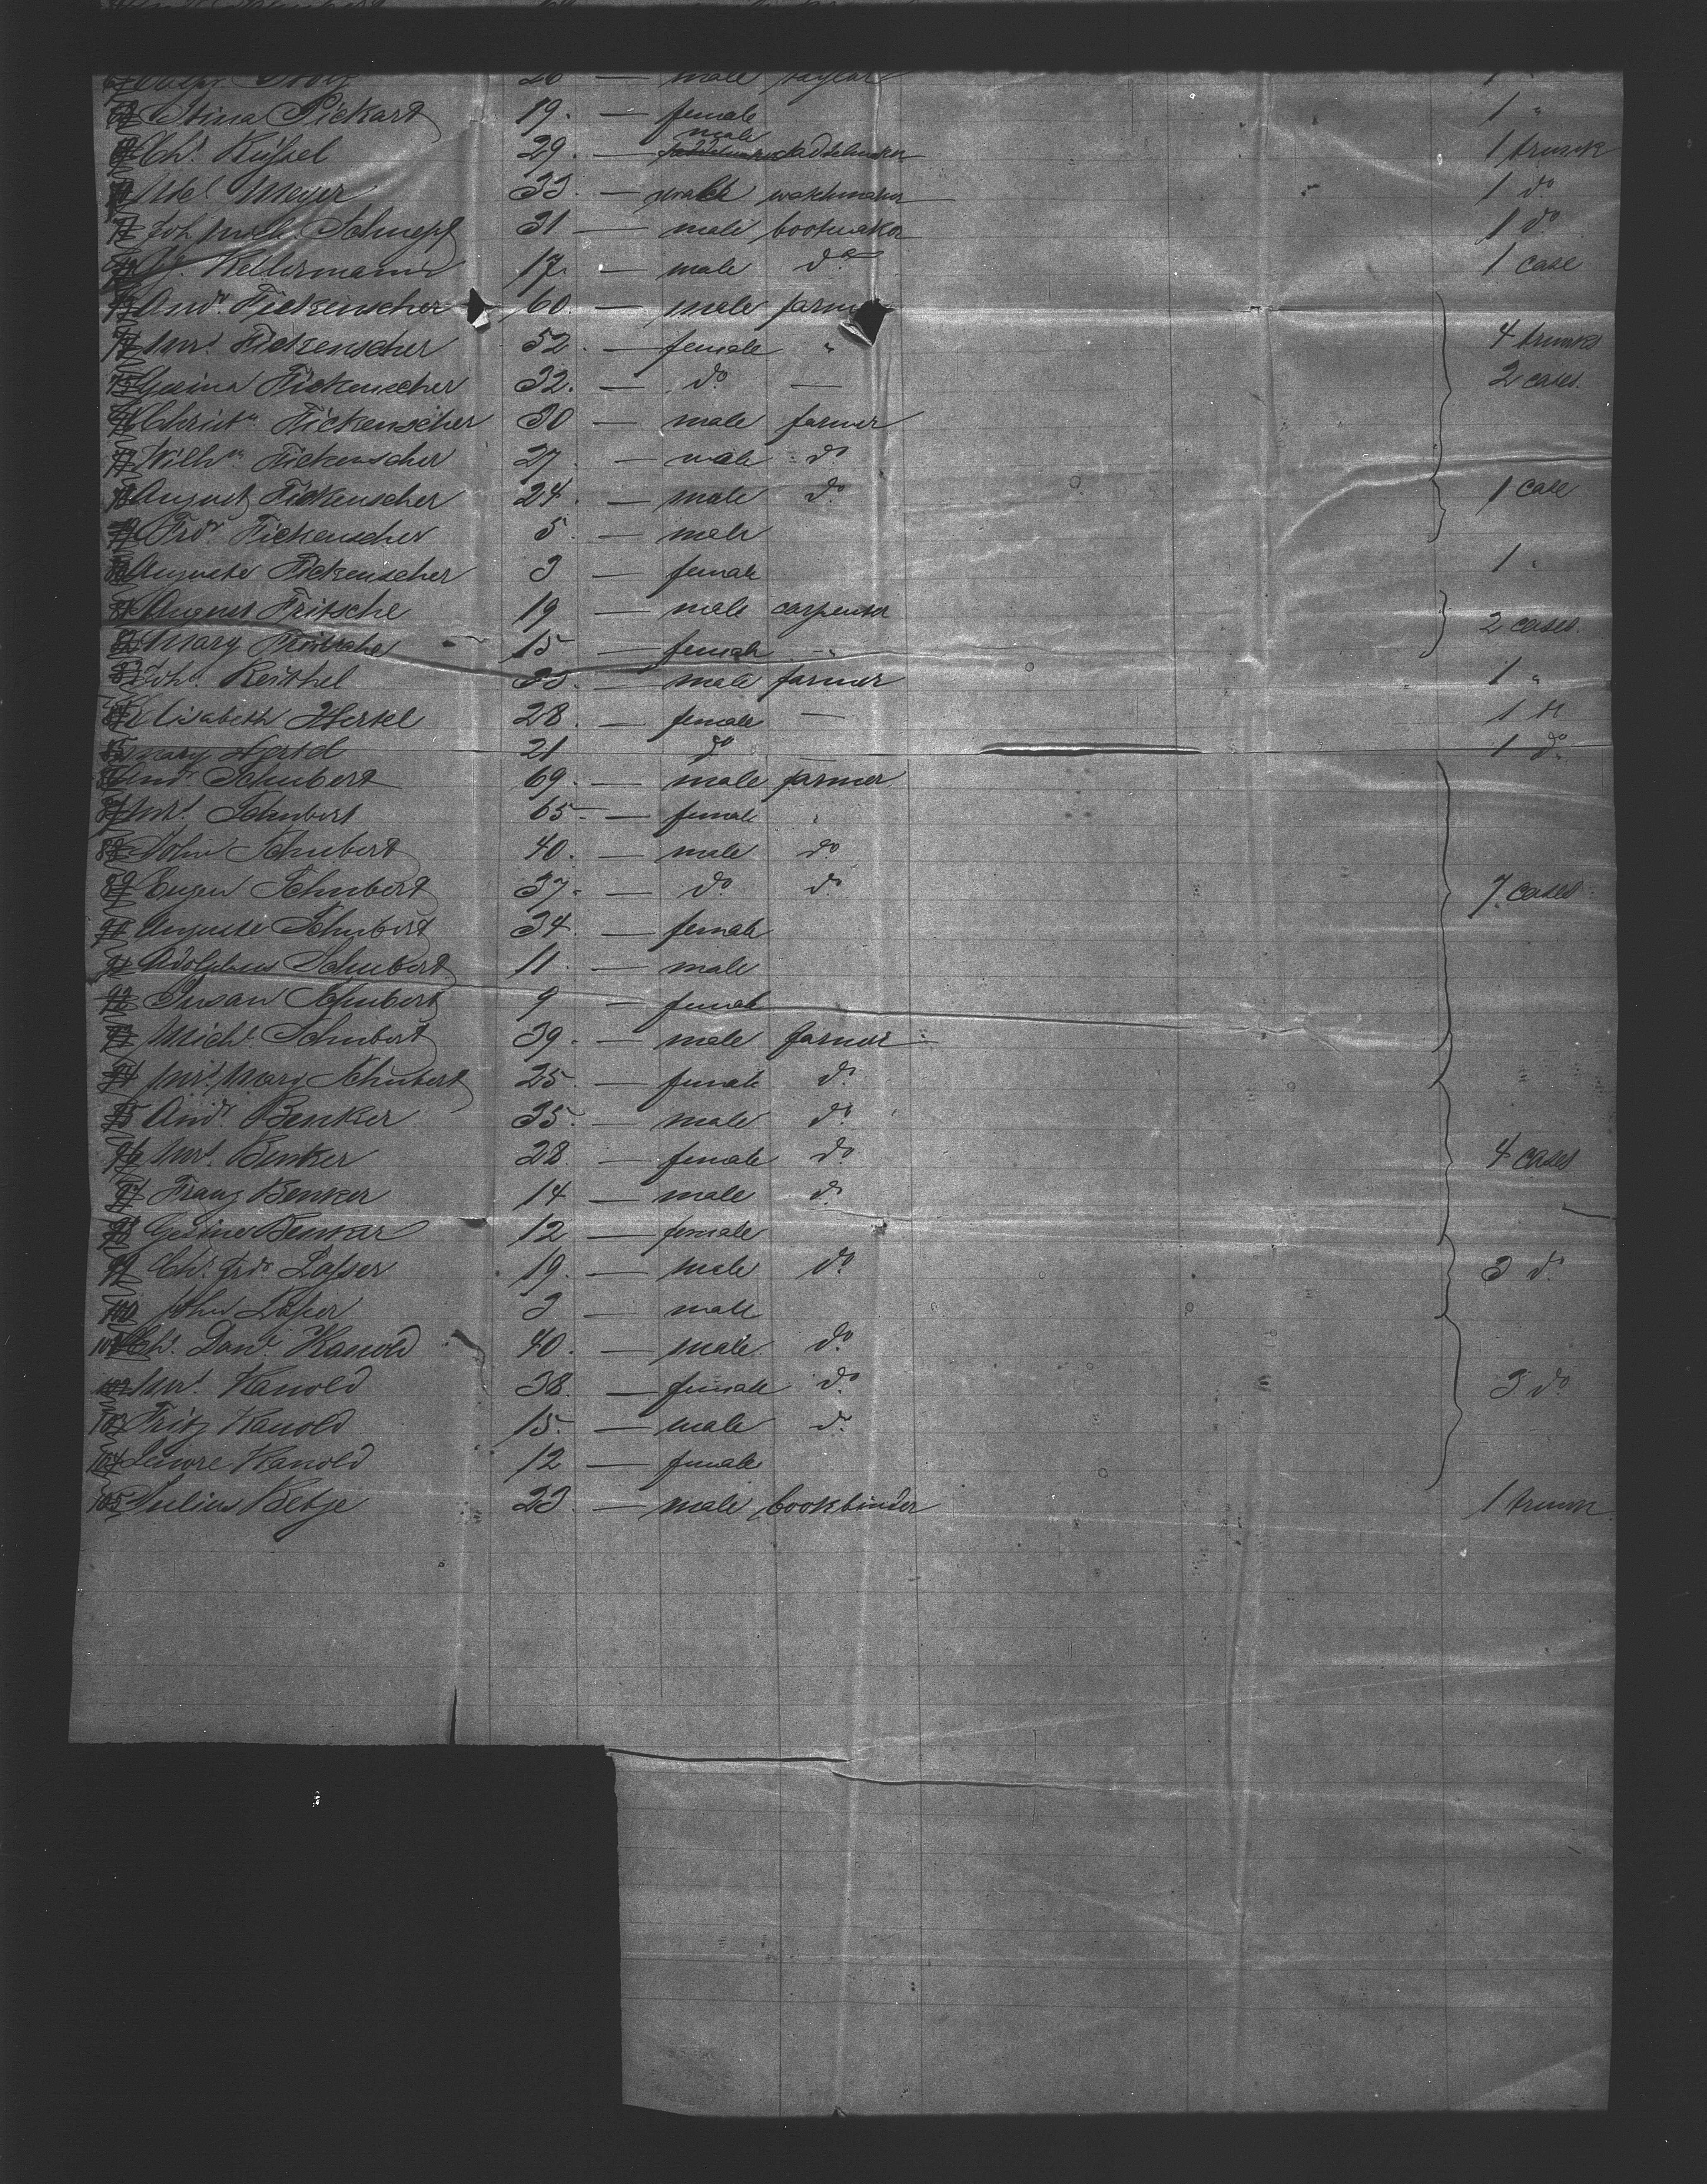 20 — male taylor 1 "
68 Stina Pickart 19. — female 1 "
69 Chr. Küssel 29. — male 1 trunk
70 Mel Meyer 33. — male watchmaker 1 do
71 Joh Schnepf 31 — male bootmaker 1 do
72 Kellermann 17. — male do 1 case
73 Andr. Fickenscher 60. — male farmer
74 Mrs. Fickenscher 52. — female " 4 trunks
75 Gesina Fickenscher 32. — do. — 2 cases.
76 Christn. Fickenscher 30 — male farmer
77 Wilhm. Fickenscher 27. — male do.
78 August Fickenscher 24. — male do. 1 case
79 Frdr. Fickenscher 5. — male
80 Auguste Fickenscher 3 — female 1 "
81 August Fritsche 19 — male carpenter
82 Mary Fritsche 15 — female " 2 cases.
83 Joh. Reithel — male farmer 1 "
84 Elisabeth Hertel 28. — female — 1 "
85 Mary Hertel 21 do 1 do.
86 Andr. Schubert 69. — male farmer
87 Mrs. Schubert 65. — female "
88 John Schubert 40. — male do.
89 Eugen Schubert 37. — do. do. 7 cases
90 Auguste Schubert 34. — female
91 Adolphus Schubert 11. — male
92 Susan Schubert 9 — female
93 Michl. Schubert 39. — male farmer
94 Mrs. Mary Schubert 25. — female do.
95 Andr. Benker 35. — male do.
96 Mrs. Benker 28. — female do. 4 cases
97 Franz Benker 14 — male do.
98 Gesine Benker 12 — female
99 Chr. Frdr. Losser 19. — male do. 3 do.
100 John Losser 3 — male
101 Chr. Danl. Kanold 40. — male. do.
102 Mrs. Kanold 38. — female do. 3 do.
103 Fritz Kanold 15. — male do.
104 Leonore Kanold 12 — female
105 Julius Betje 23. — male bookbinder 1 trunk